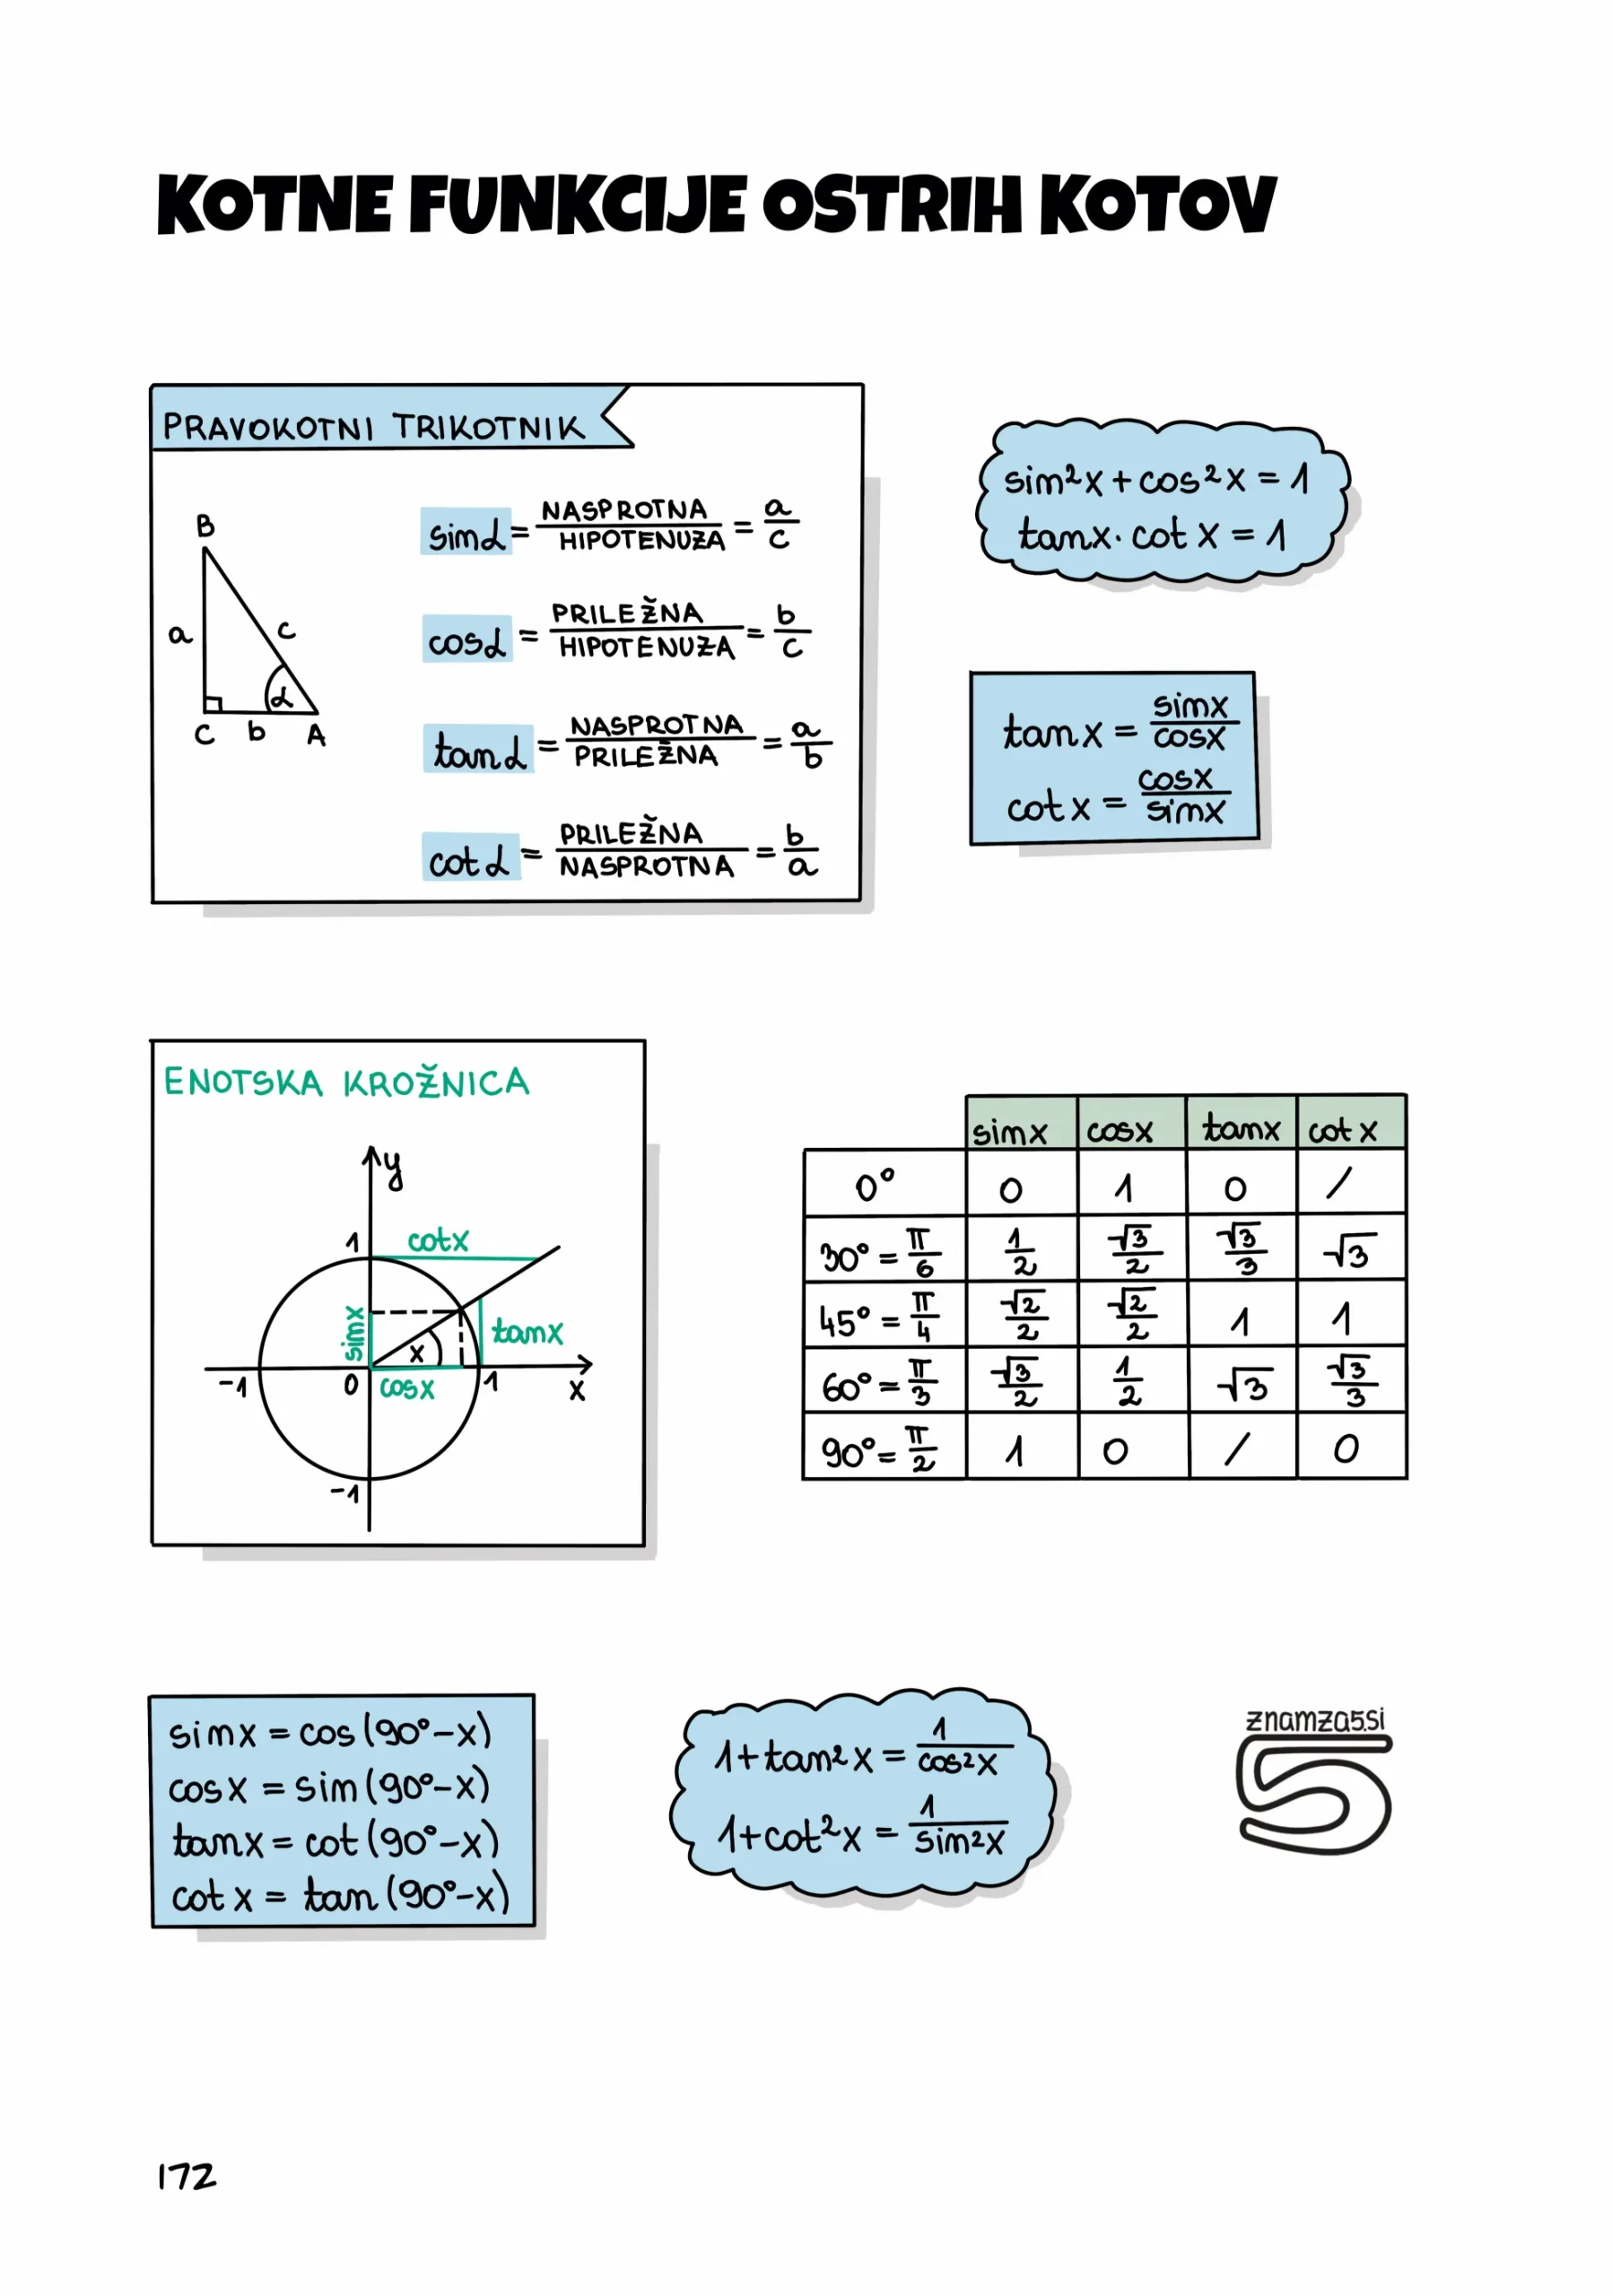 KOTNE FUNKCIJE OSTRIH KOTOV
PRAVOKOTNI TRIKOTNIK
B
a
c
α
C b A
sin α = NASPROTNA / HIPOTENUZA = a / c
cos α = PRILEŽNA / HIPOTENUZA = b / c
tan α = NASPROTNA / PRILEŽNA = a / b
cot α = PRILEŽNA / NASPROTNA = b / a
sin²x + cos²x = 1
tan x · cot x = 1
tan x = sin x / cos x
cot x = cos x / sin x
ENOTSKA KROŽNICA
y
1 cot x
sin x
x
tan x
-1 0 cos x 1 x
-1
sin x cos x tan x cot x
0° 0 1 0 /
30° = π/6 1/2 √3/2 √3/3 √3
45° = π/4 √2/2 √2/2 1 1
60° = π/3 √3/2 1/2 √3 √3/3
90° = π/2 1 0 / 0
sin x = cos (90°-x)
cos x = sin (90°-x)
tan x = cot (90°-x)
cot x = tan (90°-x)
1 + tan²x = 1 / cos²x
1 + cot²x = 1 / sin²x
znamza5.si
5
172